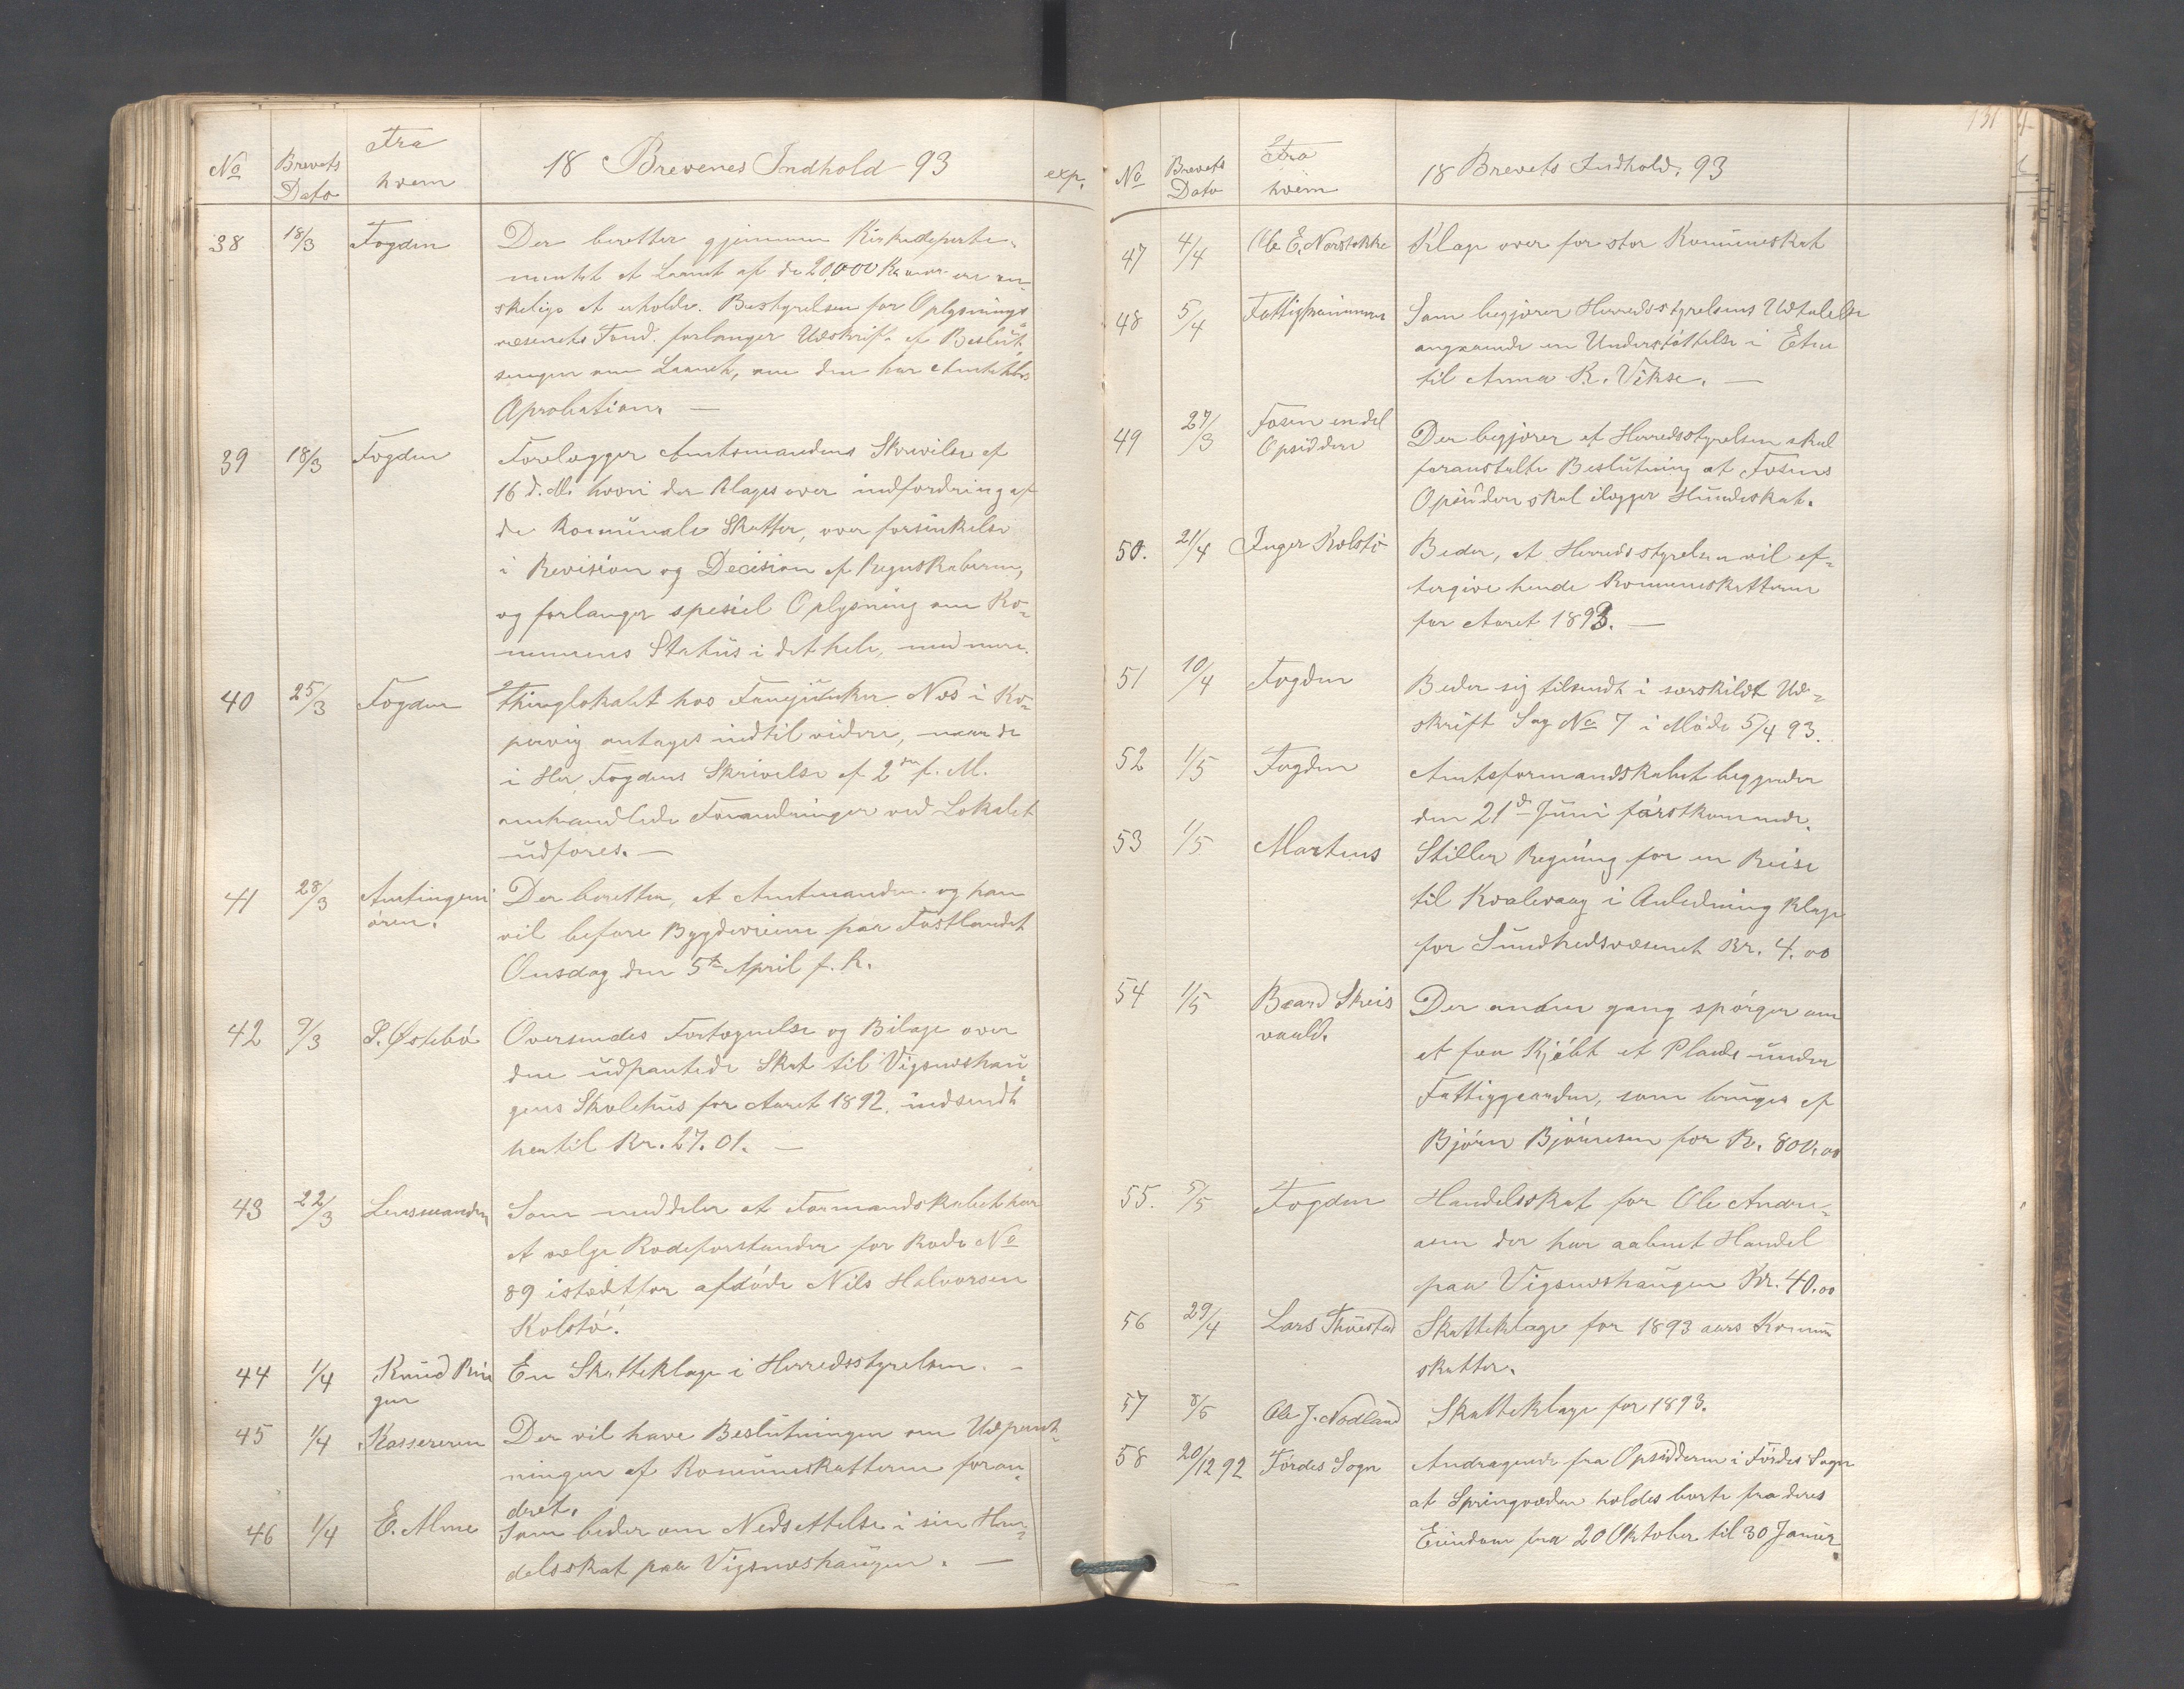 No Brevets Dato Fra hvem 18 Brevenes Indhold 93 exp.
38 18/3 Fogden Der beretter gjennem Kirkedeparte-
mentet et Laanet af de 20,000 Kroner
skelige at erholde. Bestyrelsen for Oplysnings
væsenets Fond. forlanger Udskrift af Beslut
ningen om Laanet, om den har
Aprobation. —
39 18/3 Fogden Forelægger Amtsmandens Skrivelse af
16 d. M. hvori der klages over indfordring af
de Komünale Skatter, over forsinkelse
i Revision og Decision af Regnskaberne,
og forlanger spesiel Oplysning om Ko-
munens Status i det hele, med mere.
40 25/3 Fogden Thinglokalet hos Fanejünker Næs i Ko-
pervig antages indtil videre, naar de
i Her Fogdens Skrivelse af 2den f. M.
omhandlede Forandringer ved Lokalet
udføres. —
41 28/3 Amtingeni Der beretter, at Amtmanden og han
ören. vil befare Bygdeveiene paa Fastlandet
Onsdag den 5te April f. k.
42 9/3 S. Østebö Oversendes Fortegnelse og Bilage over
den udpantede Skat til Vigsneshau
gens Skolehus for Aaret 1892. indsendt
hertil Kr. 27.01. —
43 22/3 Lensmanden Som meddeler at Formandskabet har
at vælge Rodeforstander for Rode No
89 istedetfor afdøde Nils Halvorsen
Kolstö.
44 1/4 Knud En Skatteklage i Herredsstyrelsen. —
45 1/4 Kassereren Der vil have Beslutningen om Udpant-
ningen af Komuneskatterne foran-
dret.
46 1/4 E. Alme Som beder om Nedsettelse i sin Han-
delsskat paa Vigsneshaugen. —
131
No Brevets Dato Fra hvem 18 Brevets Indhold. 93
47 4/4 Ole E. Klage over for stor Komuneskat
48 5/4 Som begjærer Herredsstyrelsens Udtalelse
angaaende en Understøttelse i Etne
til Anna K. Vikse. —
49 27/3 Fosen endel Der begjærer at Herredsstyrelsen skal
Opsiddere foranstalte Beslutning at Fosens
Opsiddere skal ilægges Hundeskat.
50. 21/4 Inger Kolstö Beder, at Herredsstyrelsen vil ef-
tergive hende Komuneskatterne
for Aaret 1893. —
51 10/4 Fogden Beder sig tilsendt i særskildt Ud-
skrift Sag No 7 i Møde 5/4 93.
52 1/5 Fogden Amtsformandskabet begynder
den 21de Juni førstkommende.
53 1/5 Martens Stiller Regning for en Reise
til Kvalevaag i Anledning Klage
for Sundhedsvæsenet Kr. 4.00
54 1/5 Baard Skeis Der anden gang spörger om
vaald. at faa Kjöbt et Plads under
Fattiggaarden, som bruges af
Bjørn Bjørnesen for K. 800.00
55. 5/5 Fogden Handelsskat for Ole Andre-
asen der har aabnet Handel
paa Vigsneshaugen Kr. 40.00
56 29/4 Lars Thuestad Skatteklage for 1893 aars Komun
skatter.
57 8/5 Ole J. Nodland Skatteklage for 1893.
58 20/12 92 Fördes Sogn Andragende fra Opsidderne i Fördes Sogn
at Springvæder holdes borte fra deres
Eiendom fra 20 Oktober til 30 Januar.